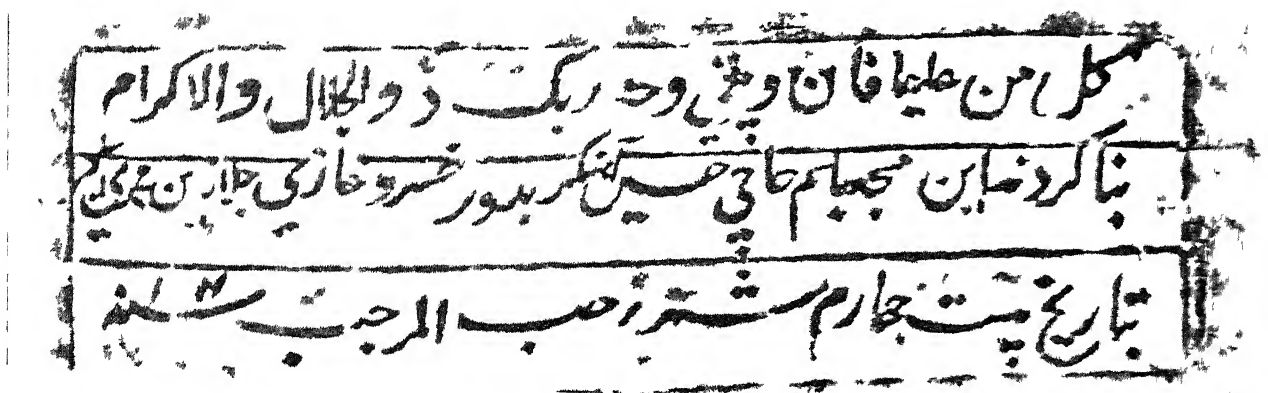 كل من عليها فان ويبقى وجه ربك ذو الجلال والاكرام
بنا كرد حاجي حسين لنگر بدور خسرو غازي جلال بن
بتاريخ بيست چهارم شهر رجب المرجب سنه